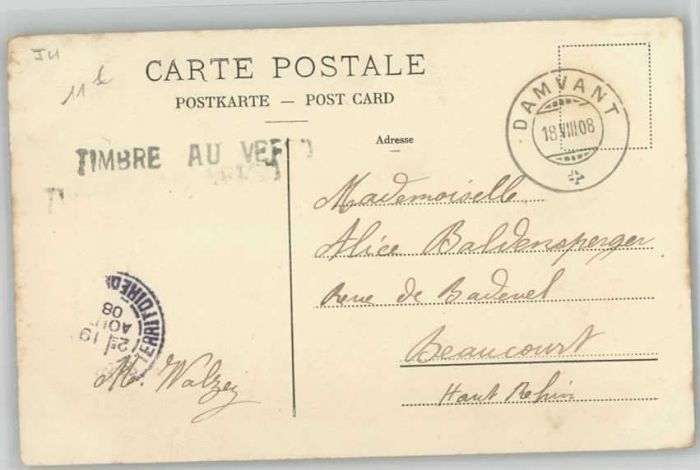 JU
11 
CARTE POSTALE
POSTKARTE — POST CARD
Adresse
DAMVANT
18.VIII.08
TIMBRE AU VERSO
Mademoiselle
Alice Baldensperger
Rue de Badevel
Beaucourt
Haut Rehin
TERRITOIRE DE
2E / 19
AOUT
08
M. Walzer